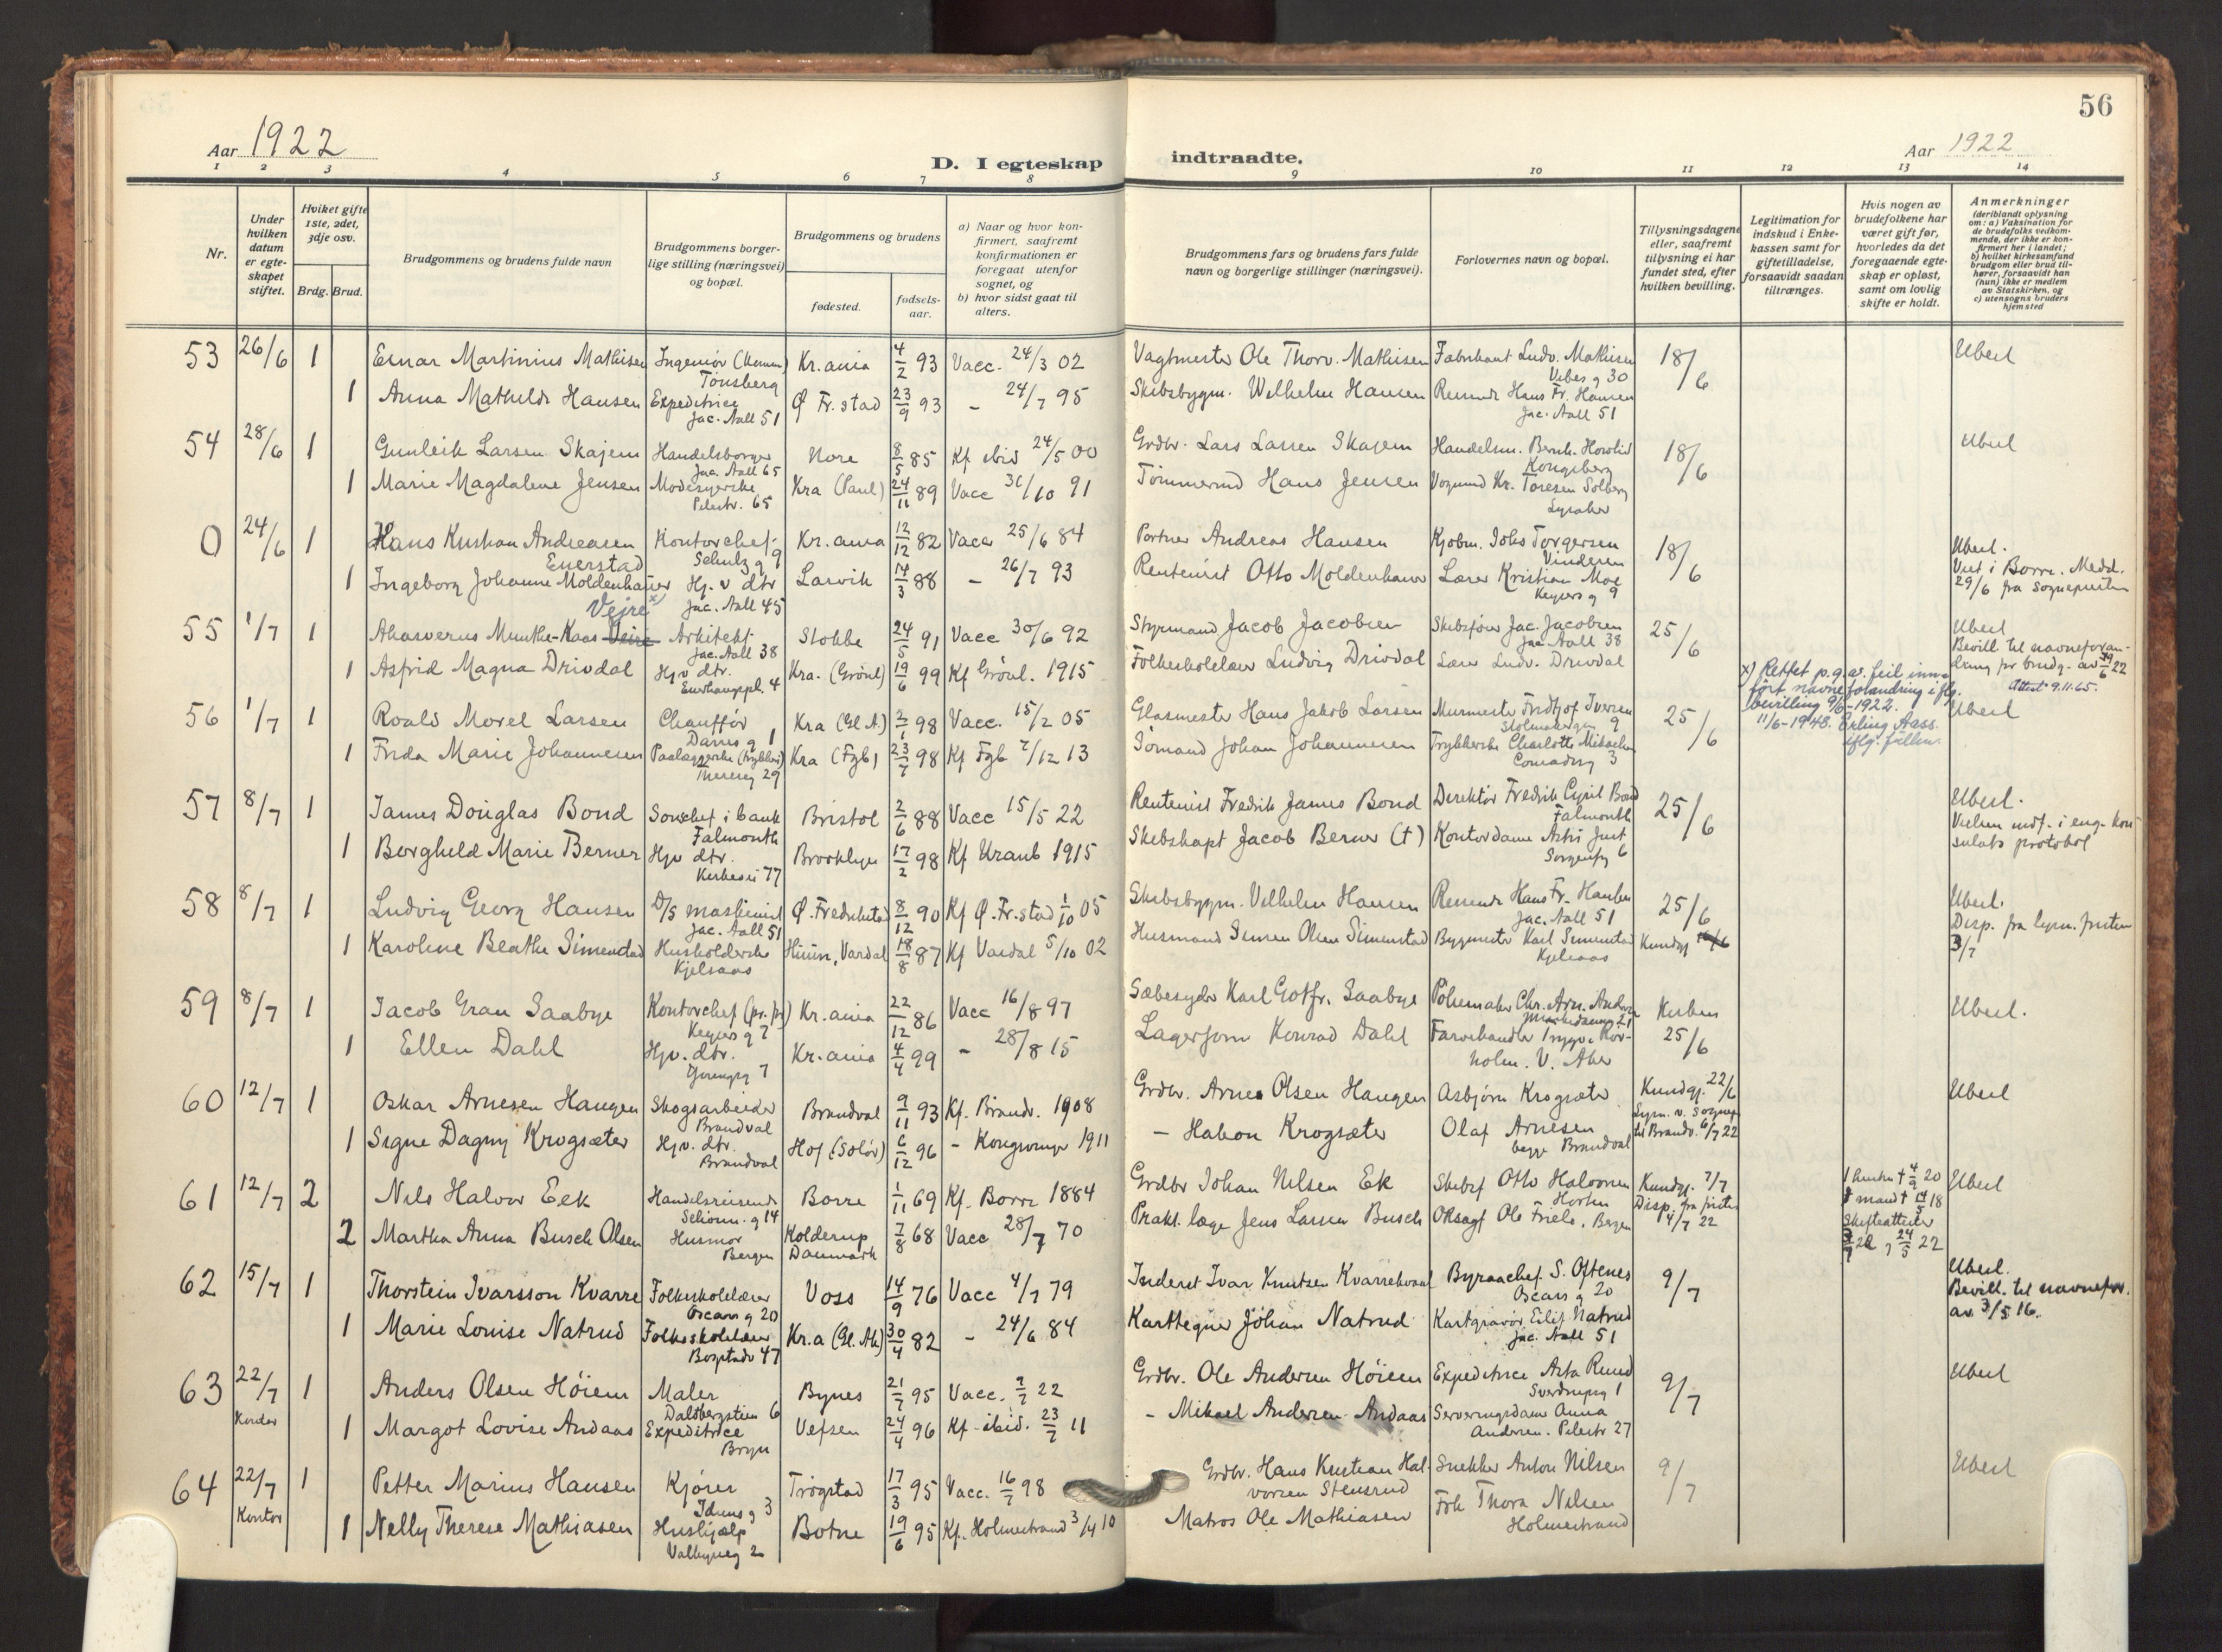 56
Aar 1922
D. I egteskap indtraadte.
Aar 1922
1 2 3 4 5 6 7 8 9 10 11 12 13 14
Nr.
Under hvilken datum er egteskapet stiftet.
Hviket gifte 1ste, 2det, 3dje osv.
Brdg. Brud.
Brudgommens og brudens fulde navn
Brudgommens borgerlige stilling (næringsvei) og bopæl.
Brudgommens og brudens
fødested.
fødselsaar.
a) Naar og hvor konfirmert, saafremt konfirmationen er foregaat utenfor sognet, og
b) hvor sidst gaat til alters.
Brudgommens fars og brudens fars fulde navn og borgerlige stillinger (næringsvei).
Forlovernes navn og bopæl.
Tillysningsdagene eller, saafremt tillysning ei har fundet sted, efter hvilken bevilling.
Legitimation for indskud i Enkekassen samt for giftetilladelse, forsaavidt saadan tiltrænges.
Hvis nogen av brudefolkene har været gift før, hvorledes da det foregaaende egteskap er opløst, samt om lovlig skifte er holdt.
Anmerkninger (deriblandt oplysning om: a) Vaksination for de brudefolks vedkommende, der ikke er konfirmert her i landet; b) hvilket kirkesamfund brudgom eller brud tilhører, forsaavidt han (hun) ikke er medlem av Statskirken, og c) utensogns bruders hjemsted
53 26/6 1 Einar Martinius Mathisen Ingeniør (Kemm) Tønsberg Kr.ania 4/2 93 Vacc. 24/3 02 Vagtmester Ole Thorv. Mathisen Fabrikant Ludv. Mathisen Vibes g 30 18/6 Uberl
1 Anna Mathilde Hansen Expeditrice Jac. Aall 51 Ø Fr.stad 23/9 93 - 24/7 95 Skibsbygm. Wilhelm Hansen Hans Fr. Hansen Jac. Aall 51
54 28/6 1 Gunleik Larsen Skajem Handelsborger Jac. Aall 65 Nore 8/5 85 Kf ibid 24/5 00 Grdbr. Lars Larsen Skajem Handelsm. Bernh. Kongsberg 18/6 Uberl
1 Marie Magdalene Jensen Modesyerske Pilestr. 65 Kra (Paul) 24/11 89 Vacc 31/10 91 Tømmermd Hans Jensen Vognmd Kr. Toresen Solberg Lysaker
0 24/6 1 Hans Kristian Andreasen Enerstad Kontorchef Schulz g 9 Kr.ania 12/12 82 Vacc 25/6 84 Portner Andreas Hansen Kjøbm. Johs Torgersen Vinderen 18/6 Uberl. Viet i Borre. Medd. 29/6 fra Sognepresten
1 Ingeborg Johanne Moldenhauer Hj. v dtr Jac. Aall 45 Larvik 14/3 88 - 26/7 93 Rentenist Otto Moldenhauer Lærer Kristian Moe Keysers g 9
Vejre x)
55 1/7 1 Ahasverus Munthe-Kaas Veire Arkitekt Jac. Aall 38 Stokke 24/5 91 Vacc 30/6 92 Styrmand Jacob Jacobsen Skibsfører Jac. Jacobsen Jac Aall 38 25/6 Uberl Bevill. til navneforandring for brudg. av 22 Attest 9.11.65.
1 Astrid Magna Drivdal Hj.v dtr. 4 Kra. (Grønl) 19/6 99 Kf Grønl. 1915 Folkeskolelærer Ludvig Drivdal Lærer Ludv. Drivdal
x) Rettet p.g.a. feil innført navneforandring iflg. bevilling 9/6-1922. 11/6-1948. Erling Aass.
56 1/7 1 Roald Morel Larsen Chauffør Darres g 1 Kra (Gl A.) 98 Vacc. 15/2 05 Glasmester Hans Jakob Larsen Murmester Fridtjof Iversen 9 25/6 Uberl
1 Frida Marie Johannesen Theresesg 29 Kra (Fgb) 23/7 98 Kf Fgb 7/12 13 Sømand Johan Johannesen Trykkerske Charlotte Mikaelsen Conradisg 3
57 8/7 1 James Douglas Bond Sorschef i bank Falmouth Bristol 2/6 88 Vacc 15/5 22 Rentenist Fredrik James Bond Direktør Fredrik Cyril Bond Falmouth 25/6 Uberl. Vielsen indf. i eng. konsulats protokol
1 Borghild Marie Berner Hjv dtr. Kirkevei 77 Brooklyn 17/2 98 Kf Uranb 1915 Skibskapt Jacob Berner (†) Kontordame Astri Just Sorgenfrg 6
58 8/7 1 Ludvig Georg Hansen D/S maskinist Jac. Aall 51 Ø. Fredrikstad 8/12 90 Kf Ø. Fr.stad 1/10 05 Skibsbygm. Vilhelm Hansen Hans Fr. Hansen Jac. Aall 51 25/6 Uberl. Disp. fra lysn. fristen 3/7
1 Karoline Beathe Simenstad Husholderske Kjelsaas Hunn, Vardal 18/8 87 Kf Vardal 5/10 02 Husmand Simen Olsen Simenstad Bygmester Karl Simenstad Kjelsaas Kundgj 16/6
59 8/7 1 Jacob Grau Saabye Kontorchef (pr. fm) Keysers g 7 Kr.ania 22/12 86 Vacc 16/8 97 Sæbesyder Karl Gotfr. Saabye Chr. Arn. 21 Kirken Uberl.
1 Ellen Dahl Hjv. dtr. 7 Kr.ania 4/4 99 - 28/8 15 Lagerform Konrad Dahl Farvehandler Trygve Korholm. V. Aker 25/6
60 12/7 1 Oskar Arnesen Haugen Skogsarbeider Brandval Brandval 9/11 93 Kf. Brandv. 1908 Grdbr. Arnes Olsen Haugen Asbjørn Krogsæter Kundgj. 22/6 Lysn. v. Sognepr til Brandv. 6/7 22 Uberl
1 Signe Dagny Krogsæter Hj.v. dtr. Brandval Hof (Solør) 6/12 96 - Kongsvinger 1911 - Hakon Krogsæter Olaf Arnesen begge Brandval
61 12/7 2 Nils Halvor Eek Handelsreisende Schønn. g 14 Borre 1/11 69 Kf. Borre 1884 Grdbr Johan Nilsen Ek Skibsf Otto Halvorsen Horten Kundgj. 7/7 Disp. fra fristen 4/7 22 1 hustru † 4/9 20 1 mand † 14/5 18 Skifteattester 24/5 22 Uberl
2 Martha Anna Busch Olsen Husmor Bergen Kolderup Danmark 7/8 68 Vacc 28/7 70 Prakt. læge Jens Larsen Busch OKsagf Ole Friele, Bergen
62 15/7 1 Thorstein Ivarsson Kvarre Folkeskolelærer Oscars g 20 Voss 14/9 76 Vacc 4/7 79 Inderst Ivar Knutsen Kvarrekvaal Byraachef S. Oftenes Oscars g 20 9/7 Uberl. Bevill. til navnefor. av 3/5 16.
1 Marie Louise Natrud Folkeskolelærer Bogstadv 47 Kr.a (Gl. Ak) 30/4 82 - 24/6 84 Karttegner Johan Natrud Kartgravør Eilif Natrud Jac. Aall 51
63 22/7 Kontor 1 Anders Olsen Høiem Maler Dalsbergstien 6 Bynes 21/7 95 Vacc. 7/7 22 Grdbr. Ole Andersen Høiem Expeditrice Asta Ruud Sverdrupsg 1 9/7 Uberl
1 Margot Lovise Andaas Expeditrice Bryn Vefsen 24/4 96 Kf ibid. 23/7 11 - Mikael Andersen Andaas Serveringsdame Anna Andersen. Pilestr 27
64 22/7 Kontor 1 Petter Marius Hansen Kjører Iduns g 3 Trøgstad 17/3 95 Vacc. 16/7 98 Grdbr. Hans Kristian Halvorsen Stensrud Snekker Anton Nilsen 9/7 Uberl
1 Nelly Therese Mathiasen Hushjælp Valkyrieg 2 Botne 19/6 95 Kf. Holmestrand 3/4 10 Matros Ole Mathiasen Frk Thora Nilsen Holmestrand